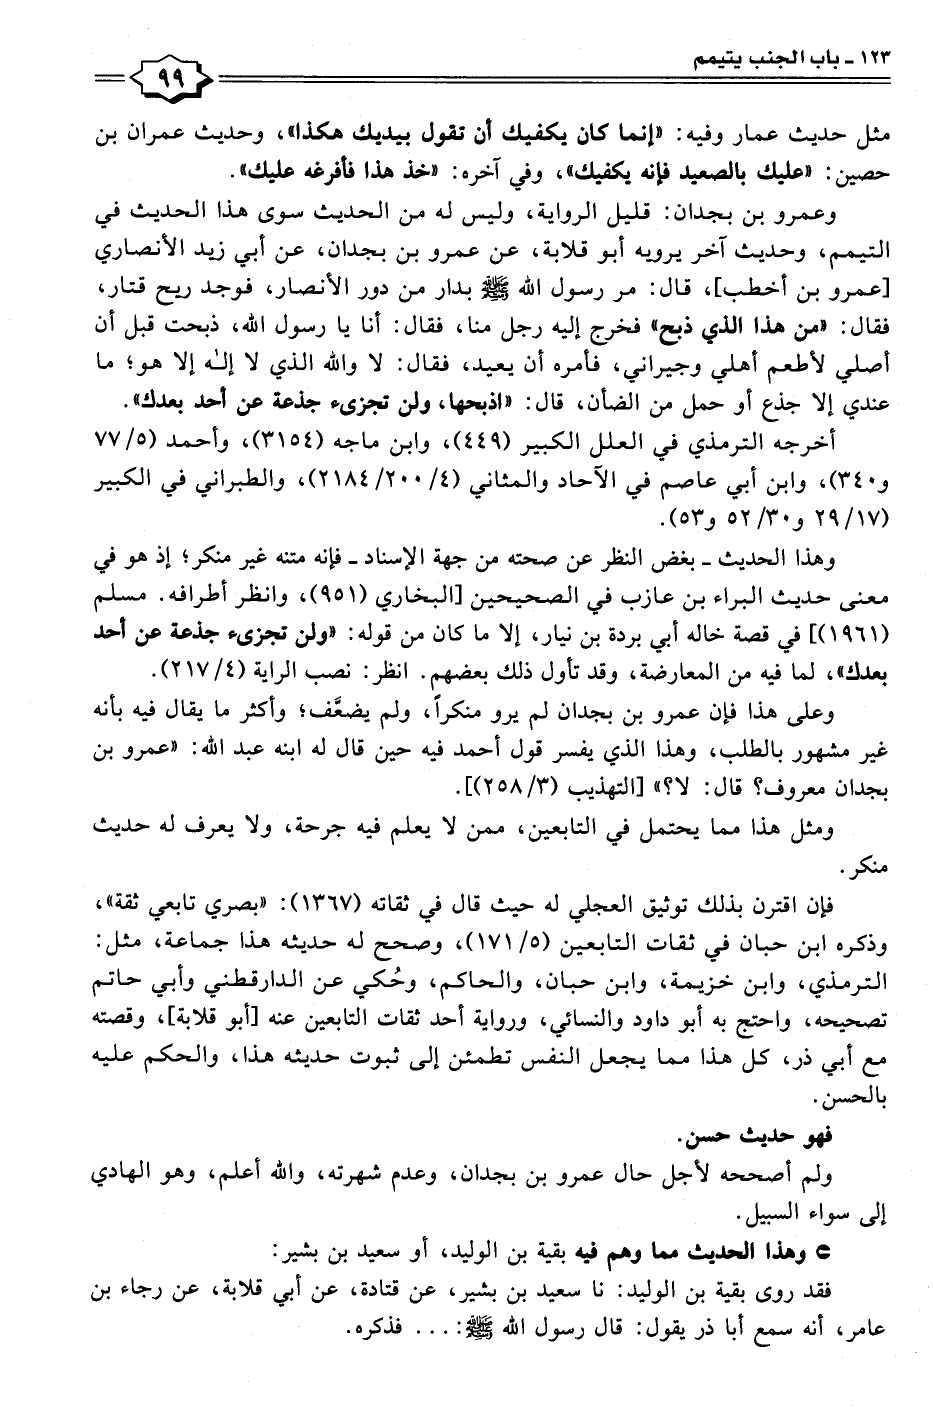 ١٢٣ ـ باب الجنب يتيمم
٩٩
مثل حديث عمار وفيه: «إنما كان يكفيك أن تقول بيديك هكذا»، وحديث عمران بن
حصين: «عليك بالصعيد فإنه يكفيك»، وفي آخره: «خذ هذا فأفرغه عليك».
وعمرو بن بجدان: قليل الرواية، وليس له من الحديث سوى هذا الحديث في
التيمم، وحديث آخر يرويه أبو قلابة، عن عمرو بن بجدان، عن أبي زيد الأنصاري
[عمرو بن أخطب]، قال: مر رسول الله ﷺ بدار من دور الأنصار، فوجد ريح قتار،
فقال: «من هذا الذي ذبح» فخرج إليه رجل منا، فقال: أنا يا رسول الله، ذبحت قبل أن
أصلي لأطعم أهلي وجيراني، فأمره أن يعيد، فقال: لا والله الذي لا إلٰه إلا هو؛ ما
عندي إلا جذع أو حمل من الضأن، قال: «اذبحها، ولن تجزىء جذعة عن أحد بعدك».
أخرجه الترمذي في العلل الكبير (٤٤٩)، وابن ماجه (٣١٥٤)، وأحمد (٥/ ٧٧
و٣٤٠)، وابن أبي عاصم في الآحاد والمثاني (٤/ ٢٠٠/ ٢١٨٤)، والطبراني في الكبير
(١٧/ ٢٩ و٣٠/ ٥٢ و٥٣).
وهذا الحديث ـ بغض النظر عن صحته من جهة الإسناد ـ فإنه متنه غير منكر؛ إذ هو في
معنى حديث البراء بن عازب في الصحيحين [البخاري (٩٥١)، وانظر أطرافه. مسلم
(١٩٦١)] في قصة خاله أبي بردة بن نيار، إلا ما كان من قوله: «ولن تجزىء جذعة عن أحد
بعدك»، لما فيه من المعارضة، وقد تأول ذلك بعضهم. انظر: نصب الراية (٤/ ٢١٧).
وعلى هذا فإن عمرو بن بجدان لم يرو منكراً، ولم يضعَّف؛ وأكثر ما يقال فيه بأنه
غير مشهور بالطلب، وهذا الذي يفسر قول أحمد فيه حين قال له ابنه عبد الله: «عمرو بن
بجدان معروف؟ قال: لا؟» [التهذيب (٣/ ٢٥٨)].
ومثل هذا مما يحتمل في التابعين، ممن لا يعلم فيه جرحة، ولا يعرف له حديث
منكر.
فإن اقترن بذلك توثيق العجلي له حيث قال في ثقاته (١٣٦٧): «بصري تابعي ثقة»،
وذكره ابن حبان في ثقات التابعين (٥/ ١٧١)، وصحح له حديثه هذا جماعة، مثل:
الترمذي، وابن خزيمة، وابن حبان، والحاكم، وحُكي عن الدارقطني وأبي حاتم
تصحيحه، واحتج به أبو داود والنسائي، ورواية أحد ثقات التابعين عنه [أبو قلابة]، وقصته
مع أبي ذر، كل هذا مما يجعل النفس تطمئن إلى ثبوت حديثه هذا، والحكم عليه
بالحسن.
فهو حديث حسن.
ولم أصححه لأجل حال عمرو بن بجدان، وعدم شهرته، والله أعلم، وهو الهادي
إلى سواء السبيل.
وهذا الحديث مما وهم فيه بقية بن الوليد، أو سعيد بن بشير:
فقد روى بقية بن الوليد: نا سعيد بن بشير، عن قتادة، عن أبي قلابة، عن رجاء بن
عامر، أنه سمع أبا ذر يقول: قال رسول الله ﷺ: ... فذكره.